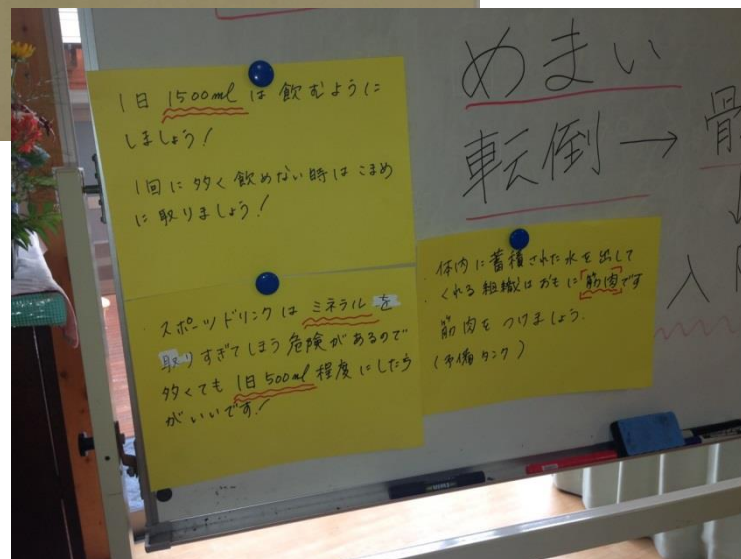 1日 1500ml は 飲むように
しましょう!
1回に多く飲めない時はこまめ
に取りましょう!
スポーツドリンクは ミネラルを
取りすぎてしまう危険があるので
多くても 1日500ml 程度にしたら
がいいです!
めまい
転倒 → 骨
↓
入
体内に蓄積された水を出して
くれる組織はおもに「筋肉」です
筋肉をつけましょう.
(予備タンク)